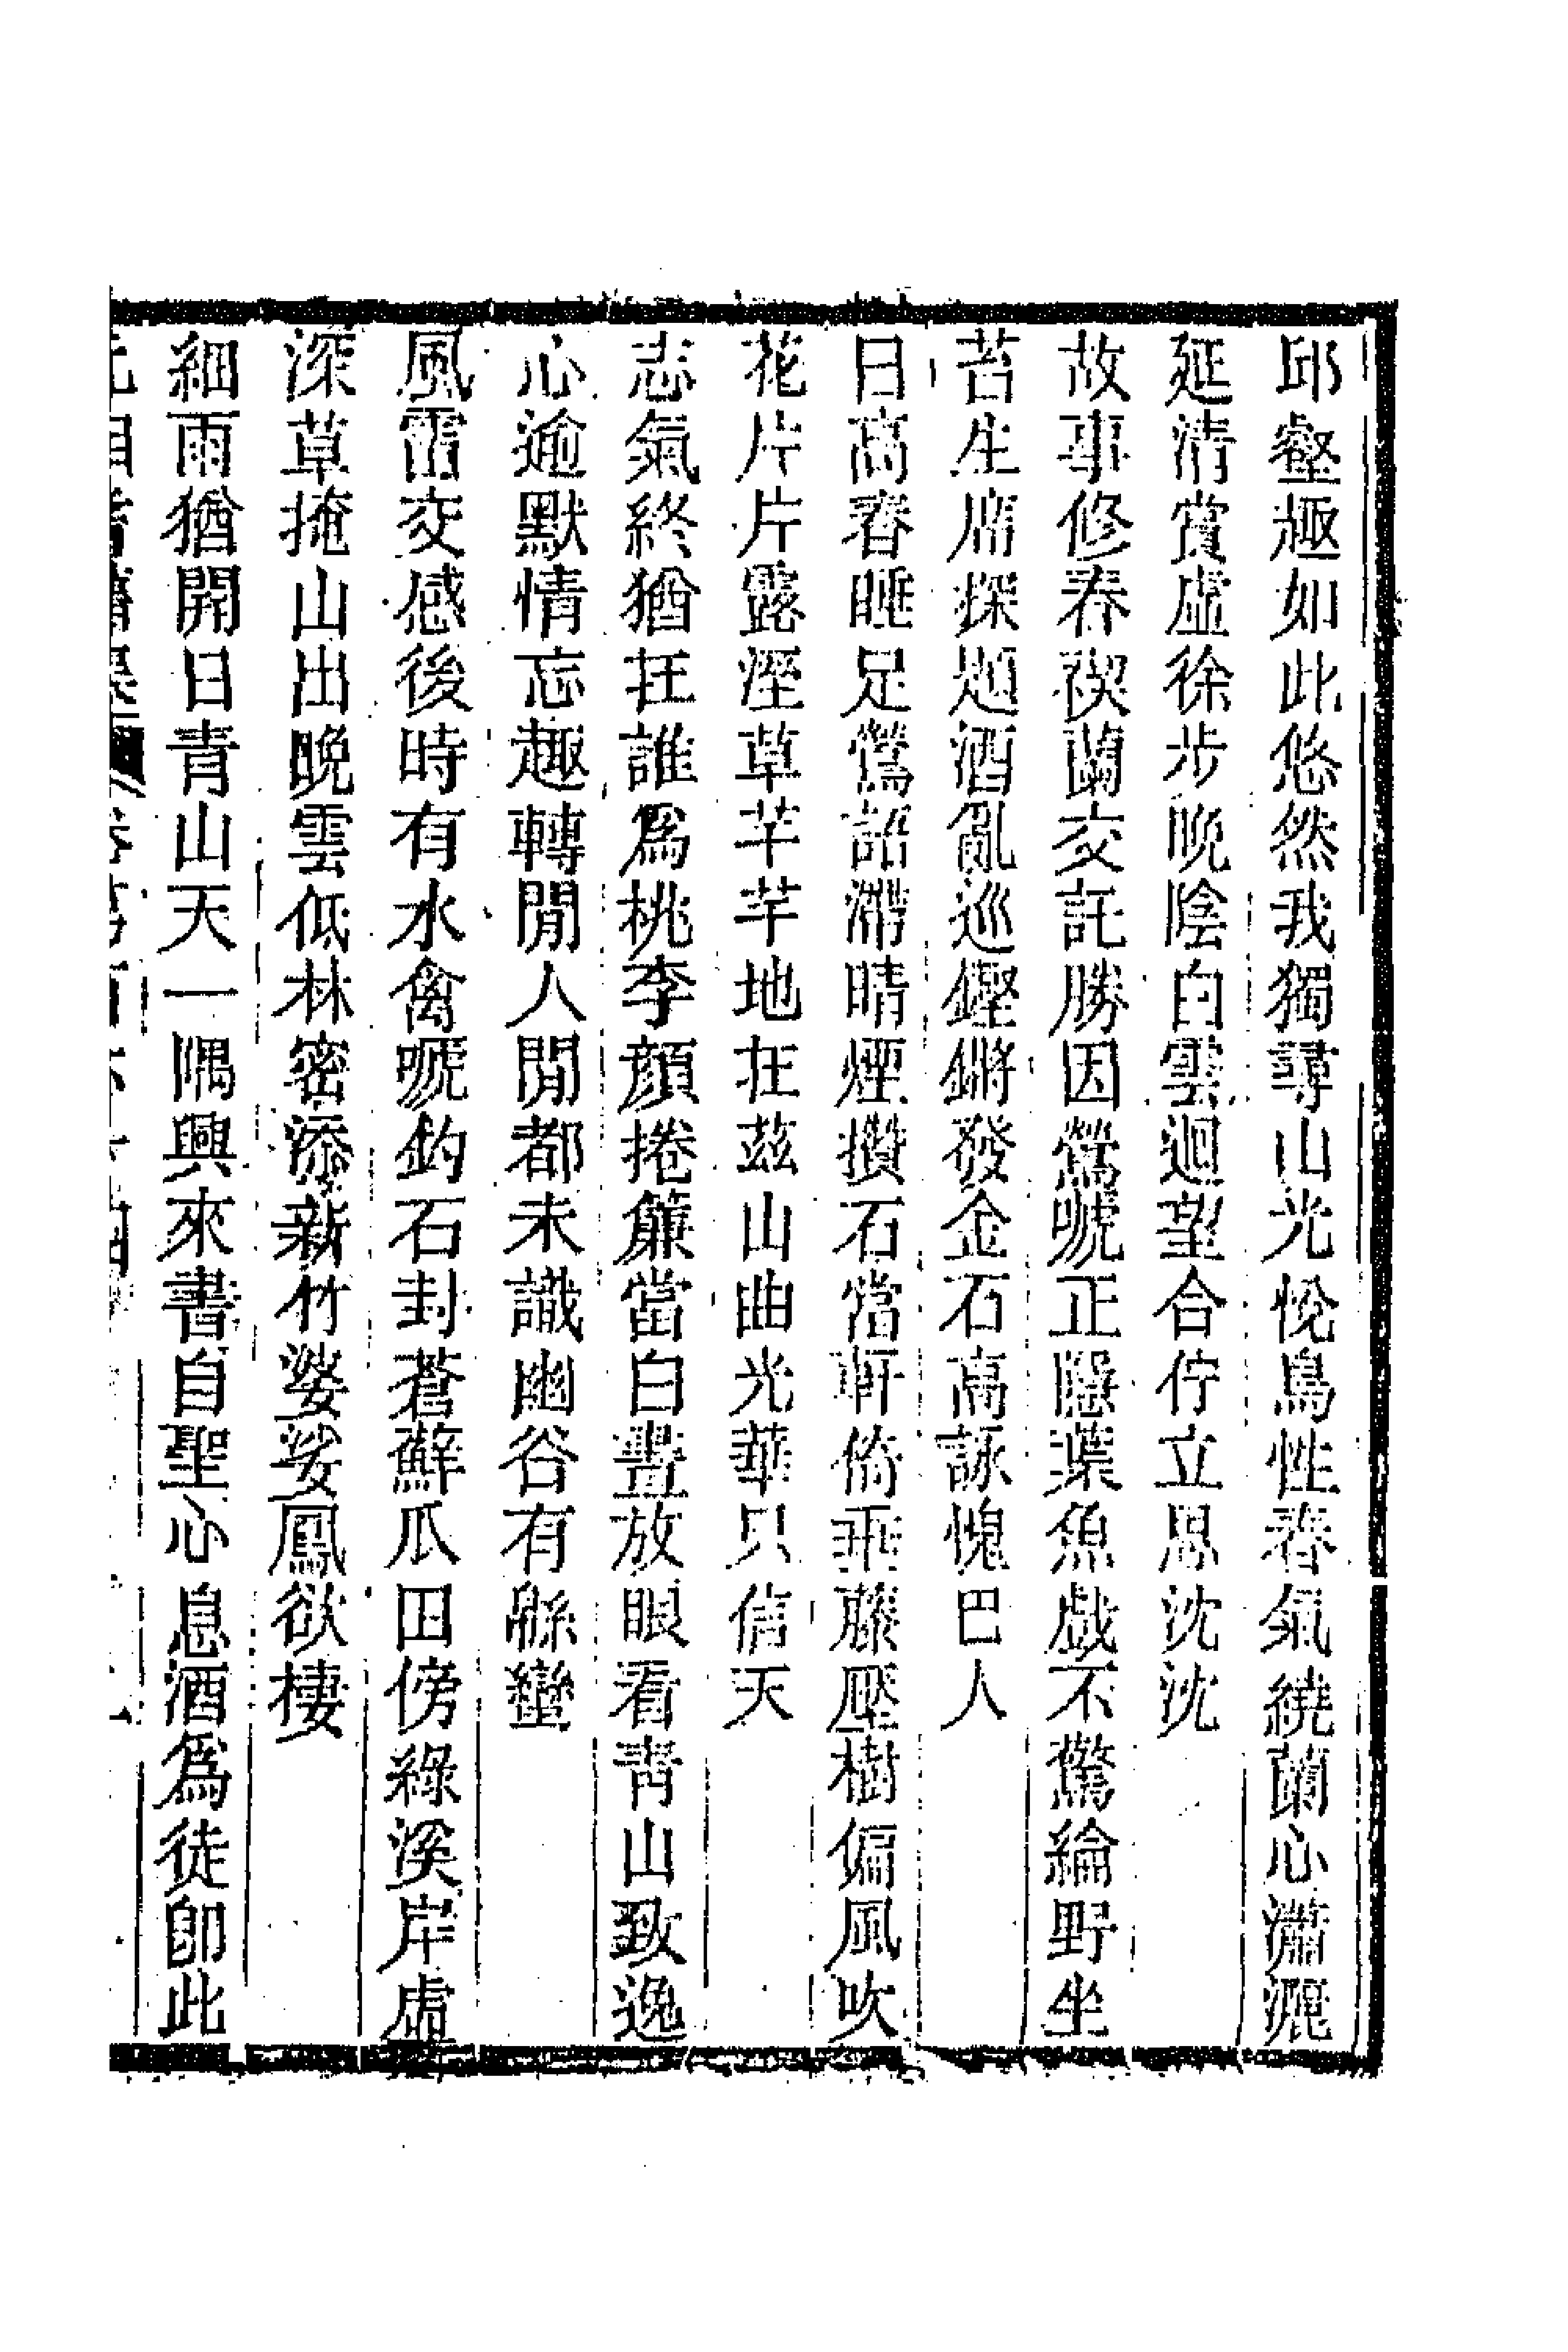 邱壑趣如此悠然我獨尋山光悅鳥性春氣繞蘭心瀟灑
延清賞虛徐步晚陰白雲迴望合佇立思沈沈
故事修春禊蘭交託勝因鶯嗁正隱葉魚戲不驚綸野坐
苔生席探題酒亂巡鏗鏘發金石高詠愧巴人
日高春睡足鶯語滯晴煙攢石當軒倚垂藤壓樹偏風吹
花片片露溼草芊芊地在茲山曲光華只信天
志氣終猶在誰爲桃李顏捲簾當白晝放眼看青山致逸
心逾默情忘趣轉閒人閒都未識幽谷有緜蠻
風雷交感後時有水禽嗁釣石封蒼蘚瓜田傍綠溪岸虛
深草掩山出晚雲低林密添新竹婆娑鳳欲棲
細雨猶開日青山天一隅興來書自聖心息酒爲徒卽此